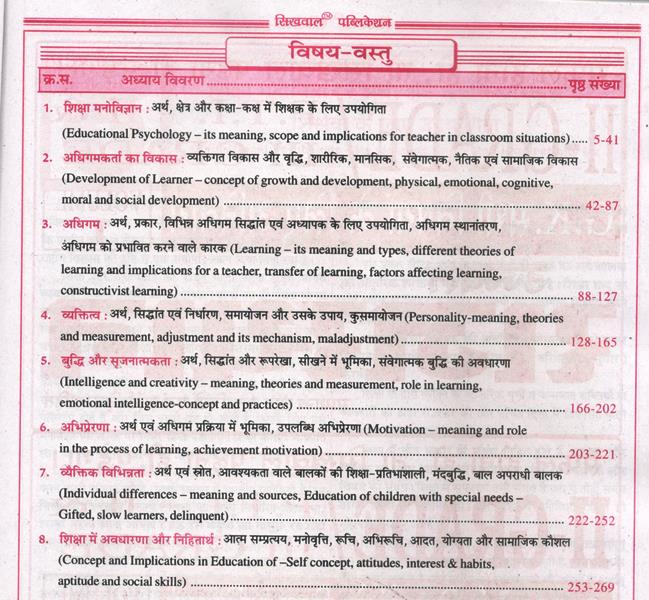 सिखवाल TM पब्लिकेशन
विषय-वस्तु
क्र.स. अध्याय विवरण.......... पृष्ठ संख्या
1. शिक्षा मनोविज्ञान : अर्थ, क्षेत्र और कक्षा-कक्ष में शिक्षक के लिए उपयोगिता
(Educational Psychology – its meaning, scope and implications for teacher in classroom situations)..... 5-41
2. अधिगमकर्ता का विकास : व्यक्तिगत विकास और वृद्धि, शारीरिक, मानसिक, संवेगात्मक, नैतिक एवं सामाजिक विकास
(Development of Learner – concept of growth and development, physical, emotional, cognitive,
moral and social development) .......... 42-87
3. अधिगम : अर्थ, प्रकार, विभिन्न अधिगम सिद्धांत एवं अध्यापक के लिए उपयोगिता, अधिगम स्थानांतरण,
अधिगम को प्रभावित करने वाले कारक (Learning – its meaning and types, different theories of
learning and implications for a teacher, transfer of learning, factors affecting learning,
constructivist learning) .......... 88-127
4. व्यक्तित्व : अर्थ, सिद्धांत एवं निर्धारण, समायोजन और उसके उपाय, कुसमायोजन (Personality-meaning, theories
and measurement, adjustment and its mechanism, maladjustment).......... 128-165
5. बुद्धि और सृजनात्मकता : अर्थ, सिद्धांत और रूपरेखा, सीखने में भूमिका, संवेगात्मक बुद्धि की अवधारणा
(Intelligence and creativity – meaning, theories and measurement, role in learning,
emotional intelligence-concept and practices) .......... 166-202
6. अभिप्रेरणा : अर्थ एवं अधिगम प्रक्रिया में भूमिका, उपलब्धि अभिप्रेरणा (Motivation – meaning and role
in the process of learning, achievement motivation) .......... 203-221
7. व्यैक्तिक विभिन्नता : अर्थ एवं स्रोत, आवश्यकता वाले बालकों की शिक्षा-प्रतिभाशाली, मंदबुद्धि, बाल अपराधी बालक
(Individual differences – meaning and sources, Education of children with special needs –
Gifted, slow learners, delinquent).......... 222-252
8. शिक्षा में अवधारणा और निहितार्थ : आत्म सम्प्रत्यय, मनोवृत्ति, रूचि, अभिरूचि, आदत, योग्यता और सामाजिक कौशल
(Concept and Implications in Education of –Self concept, attitudes, interest & habits,
aptitude and social skills) .......... 253-269